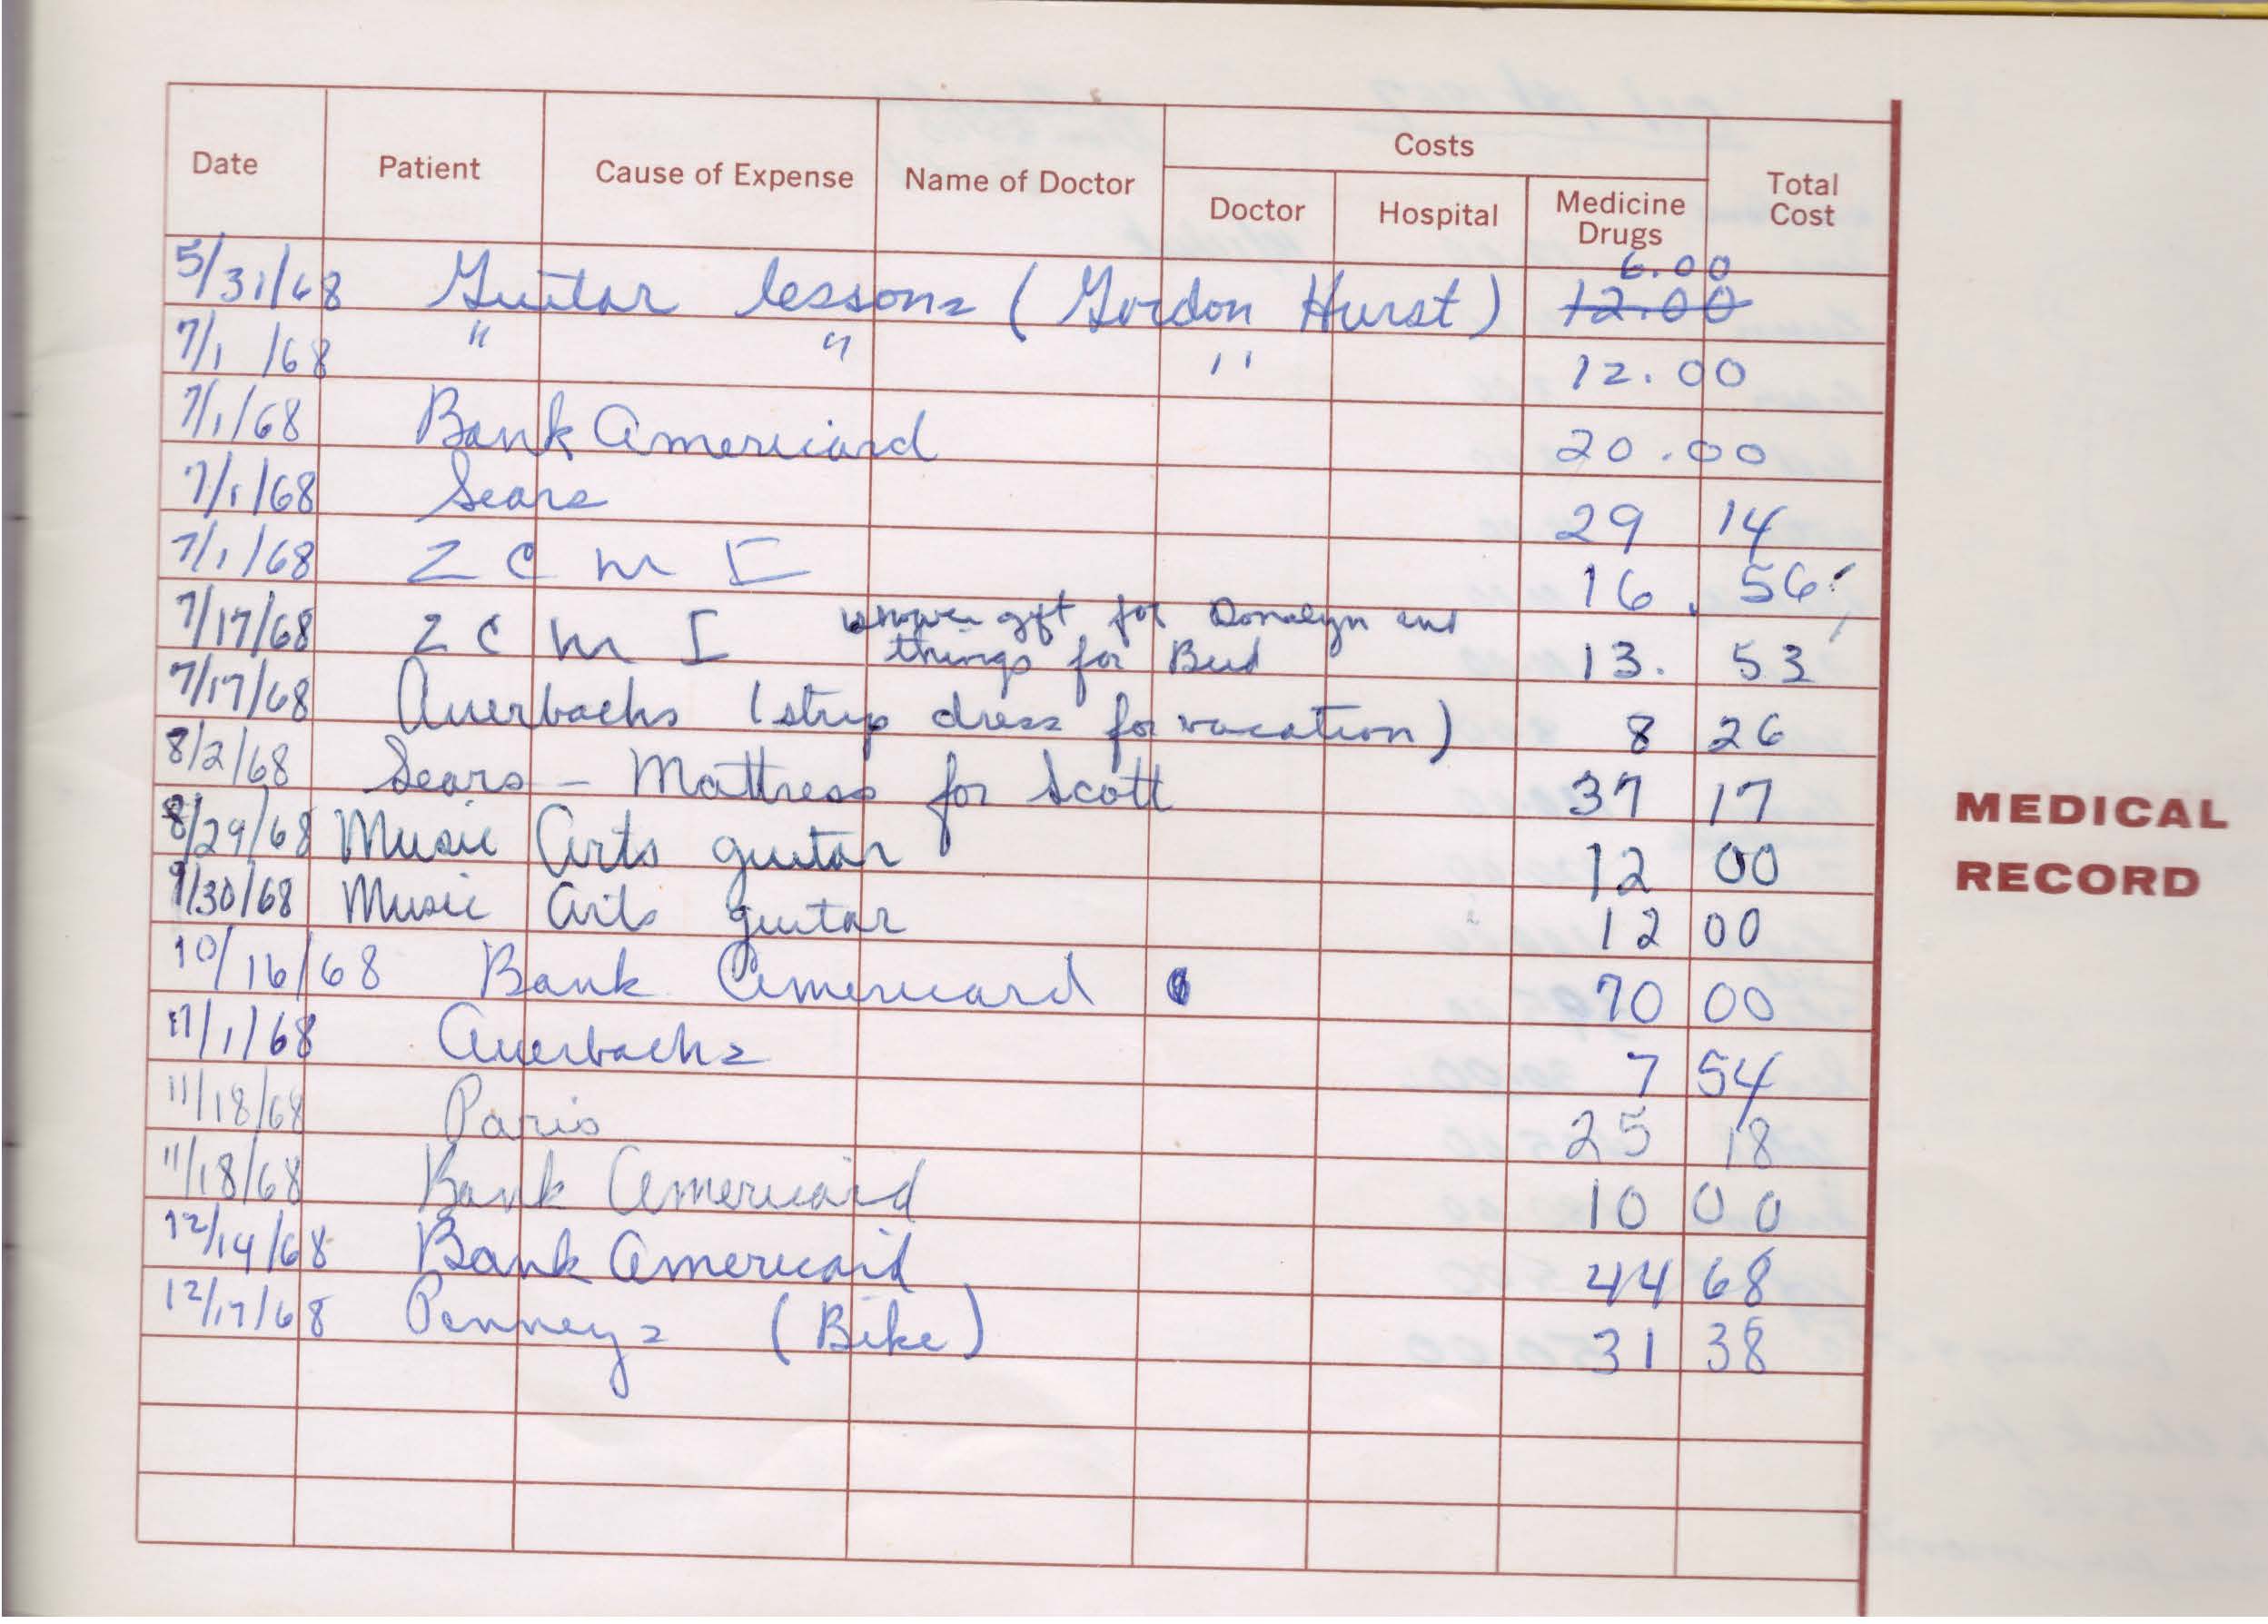 Costs
Date Patient Cause of Expense Name of Doctor Doctor Hospital Medicine Drugs Total Cost
6.00
5/31/68 Guitar lessons (Gordon Hurst) 12.00
7/1/68 " " " 12.00
7/1/68 Bank Americard 20.00
7/1/68 Sears 29 14
7/1/68 Z C M I 16. 56
7/17/68 Z C M I shower gift for Donalyn and
things for Bud 13. 53
7/17/68 Auerbachs (strip dress for vacation) 8 26
8/2/68 Sears - Mattress for Scott 37 17
8/29/68 Music Arts guitar 12 00
9/30/68 Music Arts guitar 12 00
10/16/68 Bank Americard 70 00
11/1/68 Auerbachs 7 54
11/18/68 Paris 25 18
11/18/68 Bank Americard 10 00
12/14/68 Bank Americard 44 68
12/17/68 Penneys (Bike) 31 38
MEDICAL
RECORD